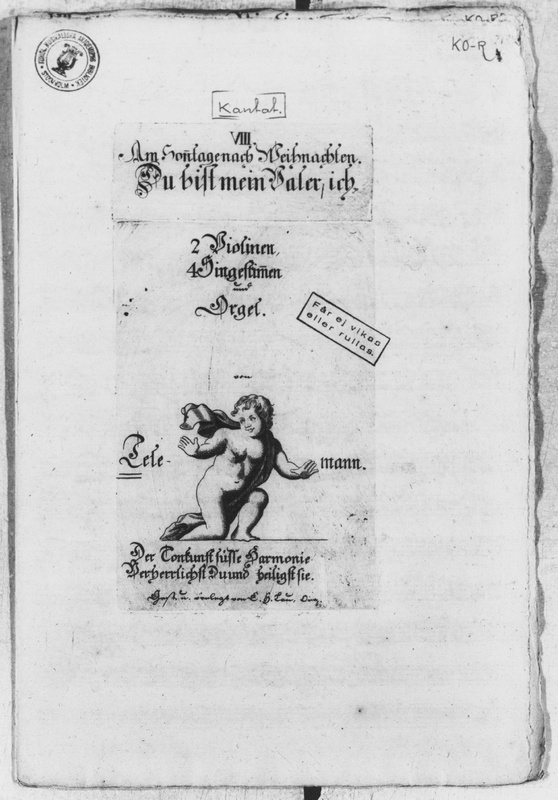 KO-R
Kantat.
VIII
Am Soñtage nach Weihnachten.
Du bist mein Vater, ich.
2 Violinen,
4 Singestim̃en
und
Orgel.
Får ej vikas
eller rullas.
von
Tele- mann.
Der Tonkunst süsse Harmonie
Verherrlichst Du und heiligst sie.